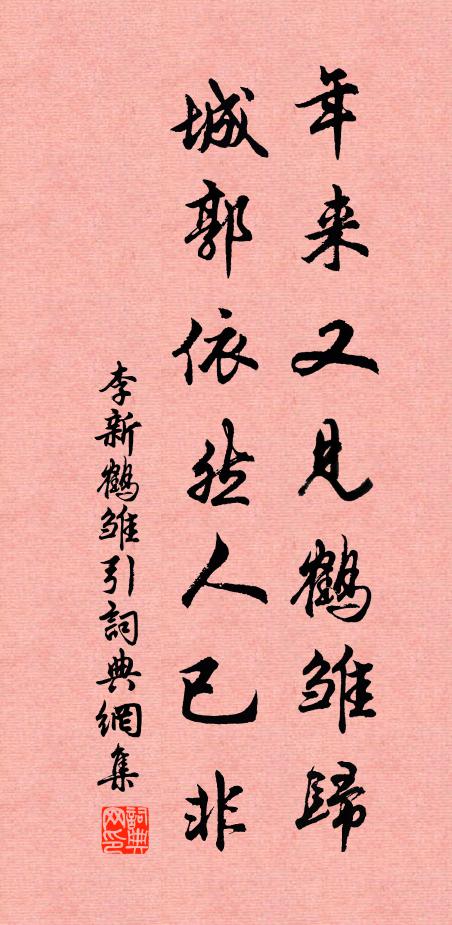 年来又见鹤雏歸
城郭依然人已非
李新鹤雏引詞典網集
詞典網印